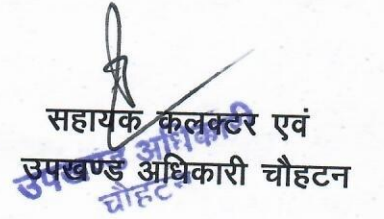 सहायक कलक्टर एवं
उपखण्ड अधिकारी चौहटन
उपखण्ड अधिकारी
चौहटन